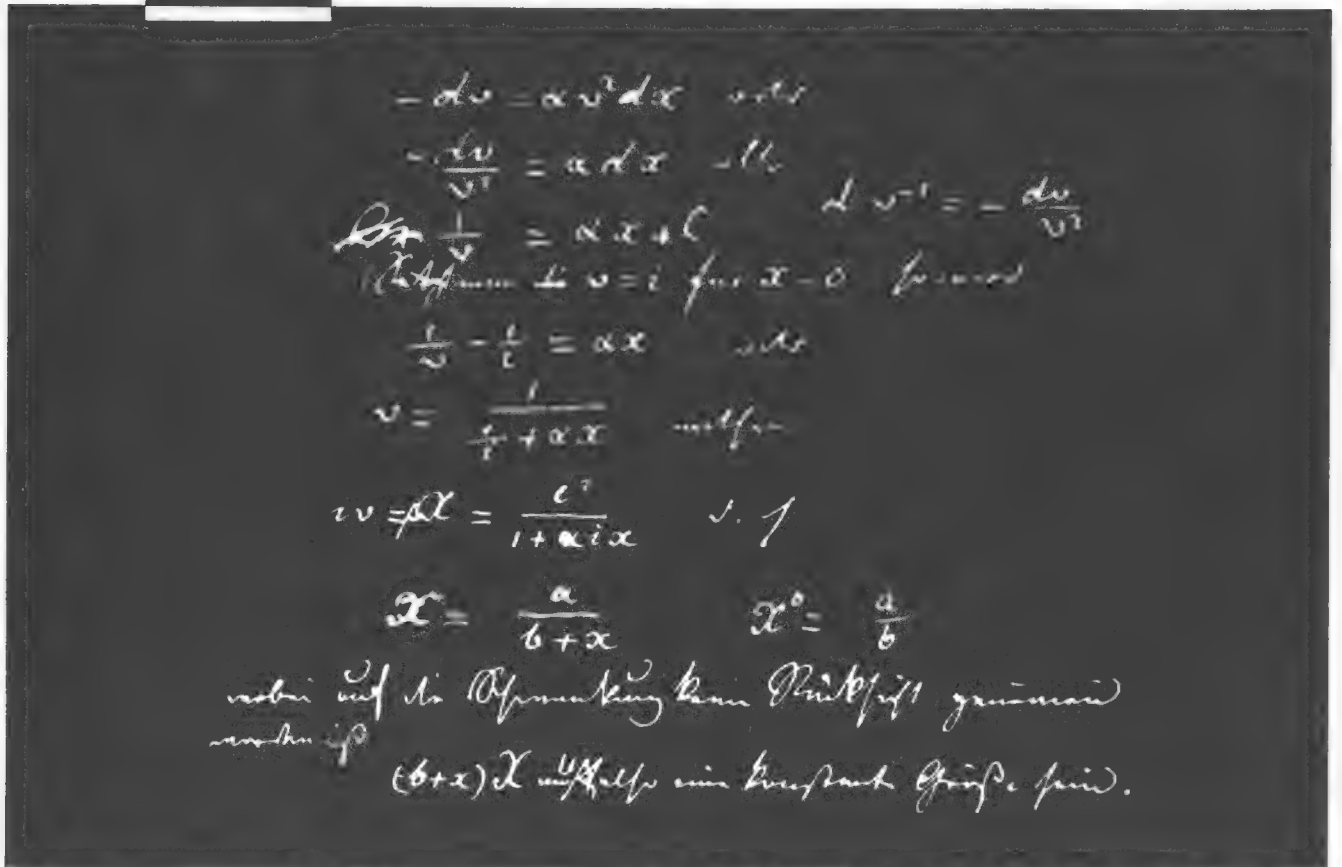 - dv = αv² dx oder
- dv/v² = α dx oder
1/v = αx + C
v = i für x = 0
d v⁻¹ = - dv/v²
1/v - 1/i = αx oder
v = 1/(1/i + αx) mithin
iv = X = i²/(1 + αix) d. f.
X = a/(b + x) X⁰ = a/b
wobei auf die Schwankung keine Rücksicht genommen
worden ist
(b+x) X muß also eine konstante Größe sein.